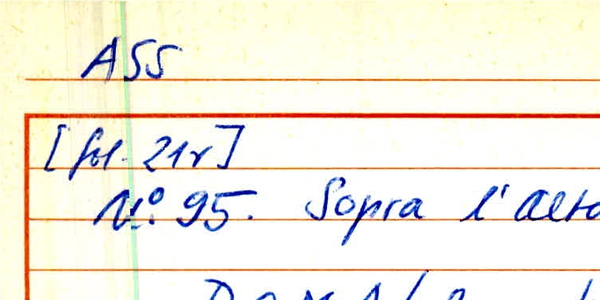 ASS
[fol. 21r]
N.º 95. Sopra l'Alta